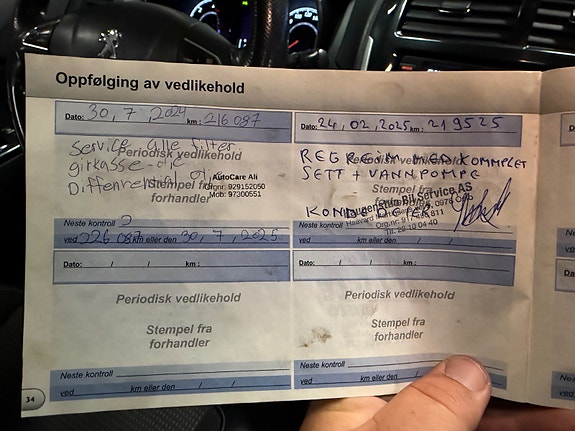 Oppfølging av vedlikehold
Dato: 30, 7, 2024 km: 216 087
Service alle filter
girkasse olje
Differensial olje
Periodisk vedlikehold
Stempel fra
forhandler
AutoCare Ali
Orgnr: 929152050
Mob: 97300551
Neste kontroll
ved 226 087 km eller den 30, 7, 2025
Dato: 24, 02, 2025 km: 219525
REGREIM MED KOMMPLET
SETT + VANNPOMPE
Periodisk vedlikehold
Stempel fra
forhandler
Bil Service AS
Tlf. 22 10 04 40
Neste kontroll
ved km eller den / /
Dato: / / km:
Periodisk vedlikehold
Stempel fra
forhandler
Neste kontroll
ved km eller den / /
Dato: / / km:
Periodisk vedlikehold
Stempel fra
forhandler
Neste kontroll
ved km eller den / /
34
Dato:
Neste
ved
Dato:
Neste
ved